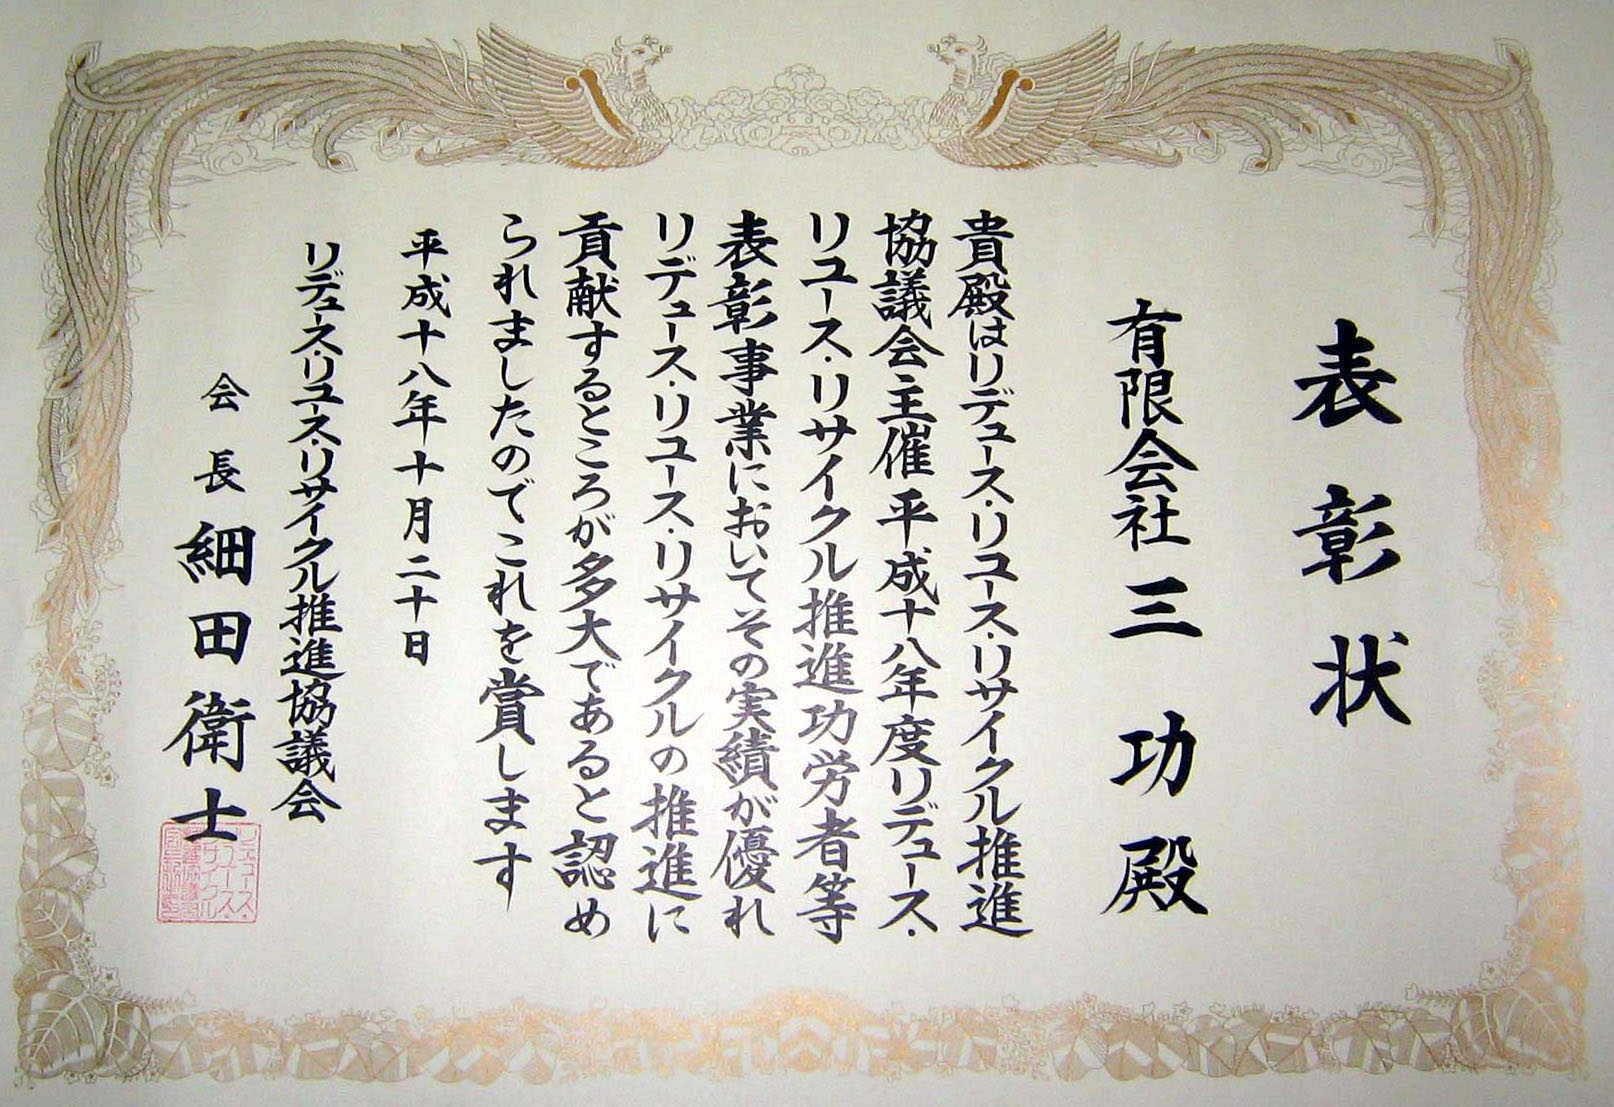 表彰状
有限会社三功殿
貴殿はリデュース・リユース・リサイクル推進
協議会主催平成十八年度リデュース・
リユース・リサイクル推進功労者等
表彰事業においてその実績が優れ
リデュース・リユース・リサイクルの推進に
貢献するところが多大であると認め
られましたのでこれを賞します
平成十八年十月二十日
リデュース・リユース・リサイクル推進協議会
会長 細田衛士